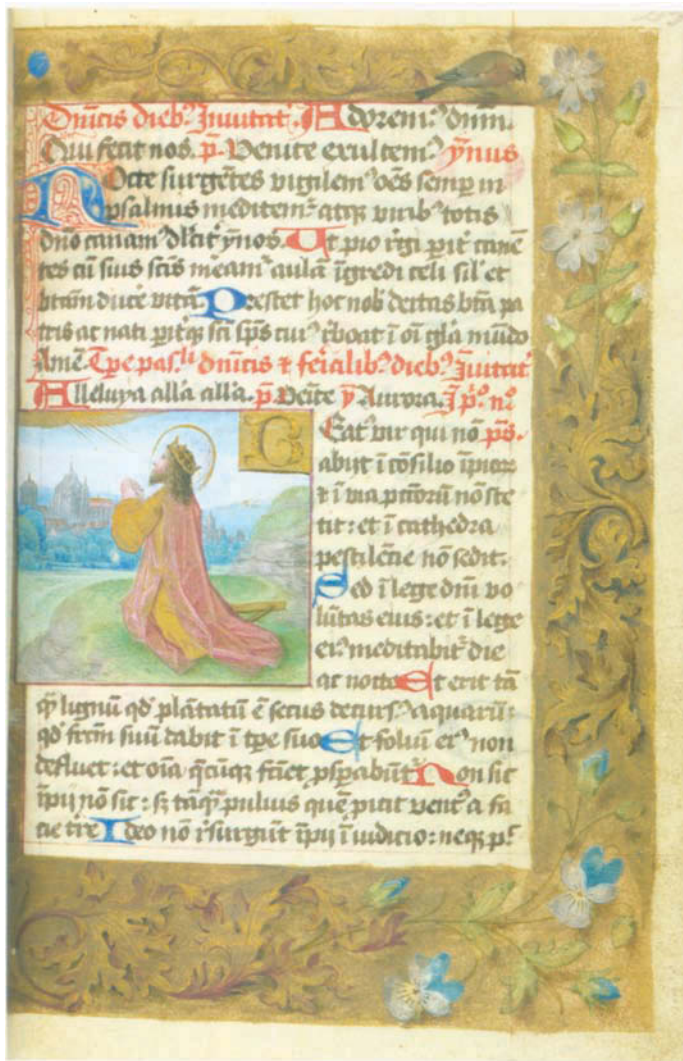 Dñicis dieb⁹ Inuitat̃. Adorem⁹ dñm.
Qui fecit nos. p̄. Venite exultem⁹ ẏmnus
Nocte surgẽtes vigilem⁹ oẽs semp in
psalmis meditem⁹ atq; virib⁹ totis
dño canam⁹ dlcit̃ ẏnos. Ut pio regi parit̃ canẽ
tes cũ suis scĩs meam̃ aulã ĩgredi celi sil' et
btãm ducẽ vitã. Prestet hoc nob̃ deitas btã pa
tris ac nati parit̃q; scĩ sp̃s cui⁹ rboat ĩ oĩ glã mũdo
Amẽ. Tpe pas.li dñicis & ferialib⁹ dieb⁹ Ĩuitat̃
Alleluya allã allã. p̄. Veĩte ẏ Aurora. Ĩ p⁰. n⁰
B
Eat⁹ vir qui nõ ps̃.
abijt ĩ cõsilio ĩpior
& ĩ via pctõrũ nõ ste
tit: et ĩ cathedra
pestilẽtie nõ sedit.
Sed ĩ lege dñi vo
lũtas eius: et ĩ lege
ei⁹ meditabit̃ die
ac nocte Et erit tã
q̃ lignũ qd̃ plãtatũ ẽ secus decurs⁹ aquarũ:
qd̃ frctm̃ suũ dabit ĩ tpe suo Et foliũ ei⁹ non
defluet: et oĩa q̃cũq; faciet psp̃abũt̃ Non sic
ĩpij nõ sic: s; tãq̃ puluis quẽ picit vent⁹ a fa
cie tre Ideo nõ rsurgũt ĩpij ĩ iudicio: neq; p̃